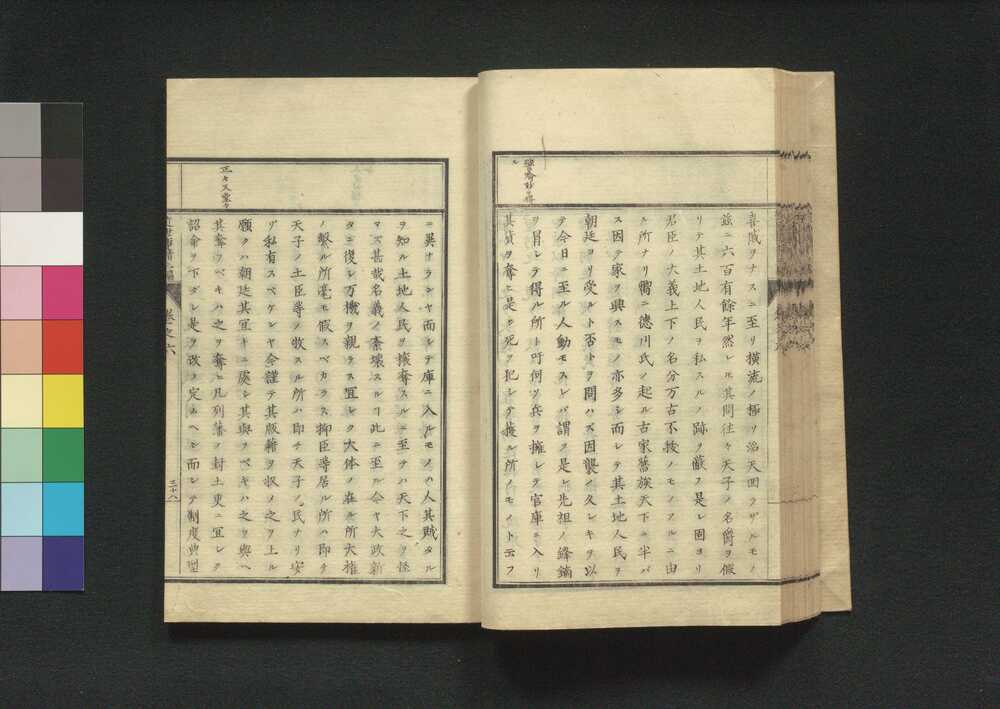 譬喩妙ヲ得
ル
喜戚ヲナスニ至リ横流ノ極ソ滔天回ラザルモノ
茲ニ六百有餘年然レモ其間往々天子ノ名爵ヲ假
リテ其土地人民ヲ私スルノ跡ヲ蔽フ是レ固ヨリ
君臣ノ大義上下ノ名分万古不抜ノモノアルニ由
ル所ナリ嚮ニ德川氏ノ起ル古家舊族天下ニ半バ
ス因テ家ヲ興スモノ亦多シ而レテ其土地人民ヲ
朝廷ヨリ受ルト否トヲ問ハズ因襲ノ久シキヲ以
テ今日ニ至ル人動モスレバ謂フ是レ先祖ノ鋒鏑
ヲ冒シテ得ル所ト吁何ソ兵ヲ擁シテ官庫ニ入リ
其貨ヲ奪ヒ是レ死ヲ犯シテ獲ル所ノモノト云フ
正々又堂々
ニ異ナランヤ而シテ庫ニ入ルモノハ人其賊タル
ヲ知ル土地人民ヲ攘奪スルニ至テハ天下之ヲ怪
マズ甚哉名義ノ紊壊スルヿ此ニ至ル今ヤ大政新
タニ復シ万機ヲ親ラス宜シク大体ノ在ル所大權
ノ繫ル所毫モ假スベカラス抑臣等居ル所ハ即チ
天子ノ土臣等ノ牧スル所ハ即チ天子ノ民ナリ安
ゾ私有スベケンヤ今謹テ其版籍ヲ収メ之ヲ上ル
願クハ朝廷其宜キニ處シ其與フベキハ之ヲ與ヘ
其奪フベキハ之ヲ奪ヒ凡列藩ノ封土更ニ宜シク
詔命ヲ下ダシ是ヲ改メ定ムヘシ而シテ制度典型
卷之六
三十八